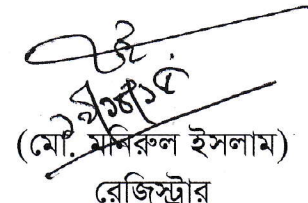 (মো. মনিরুল ইসলাম)
রেজিস্ট্রার